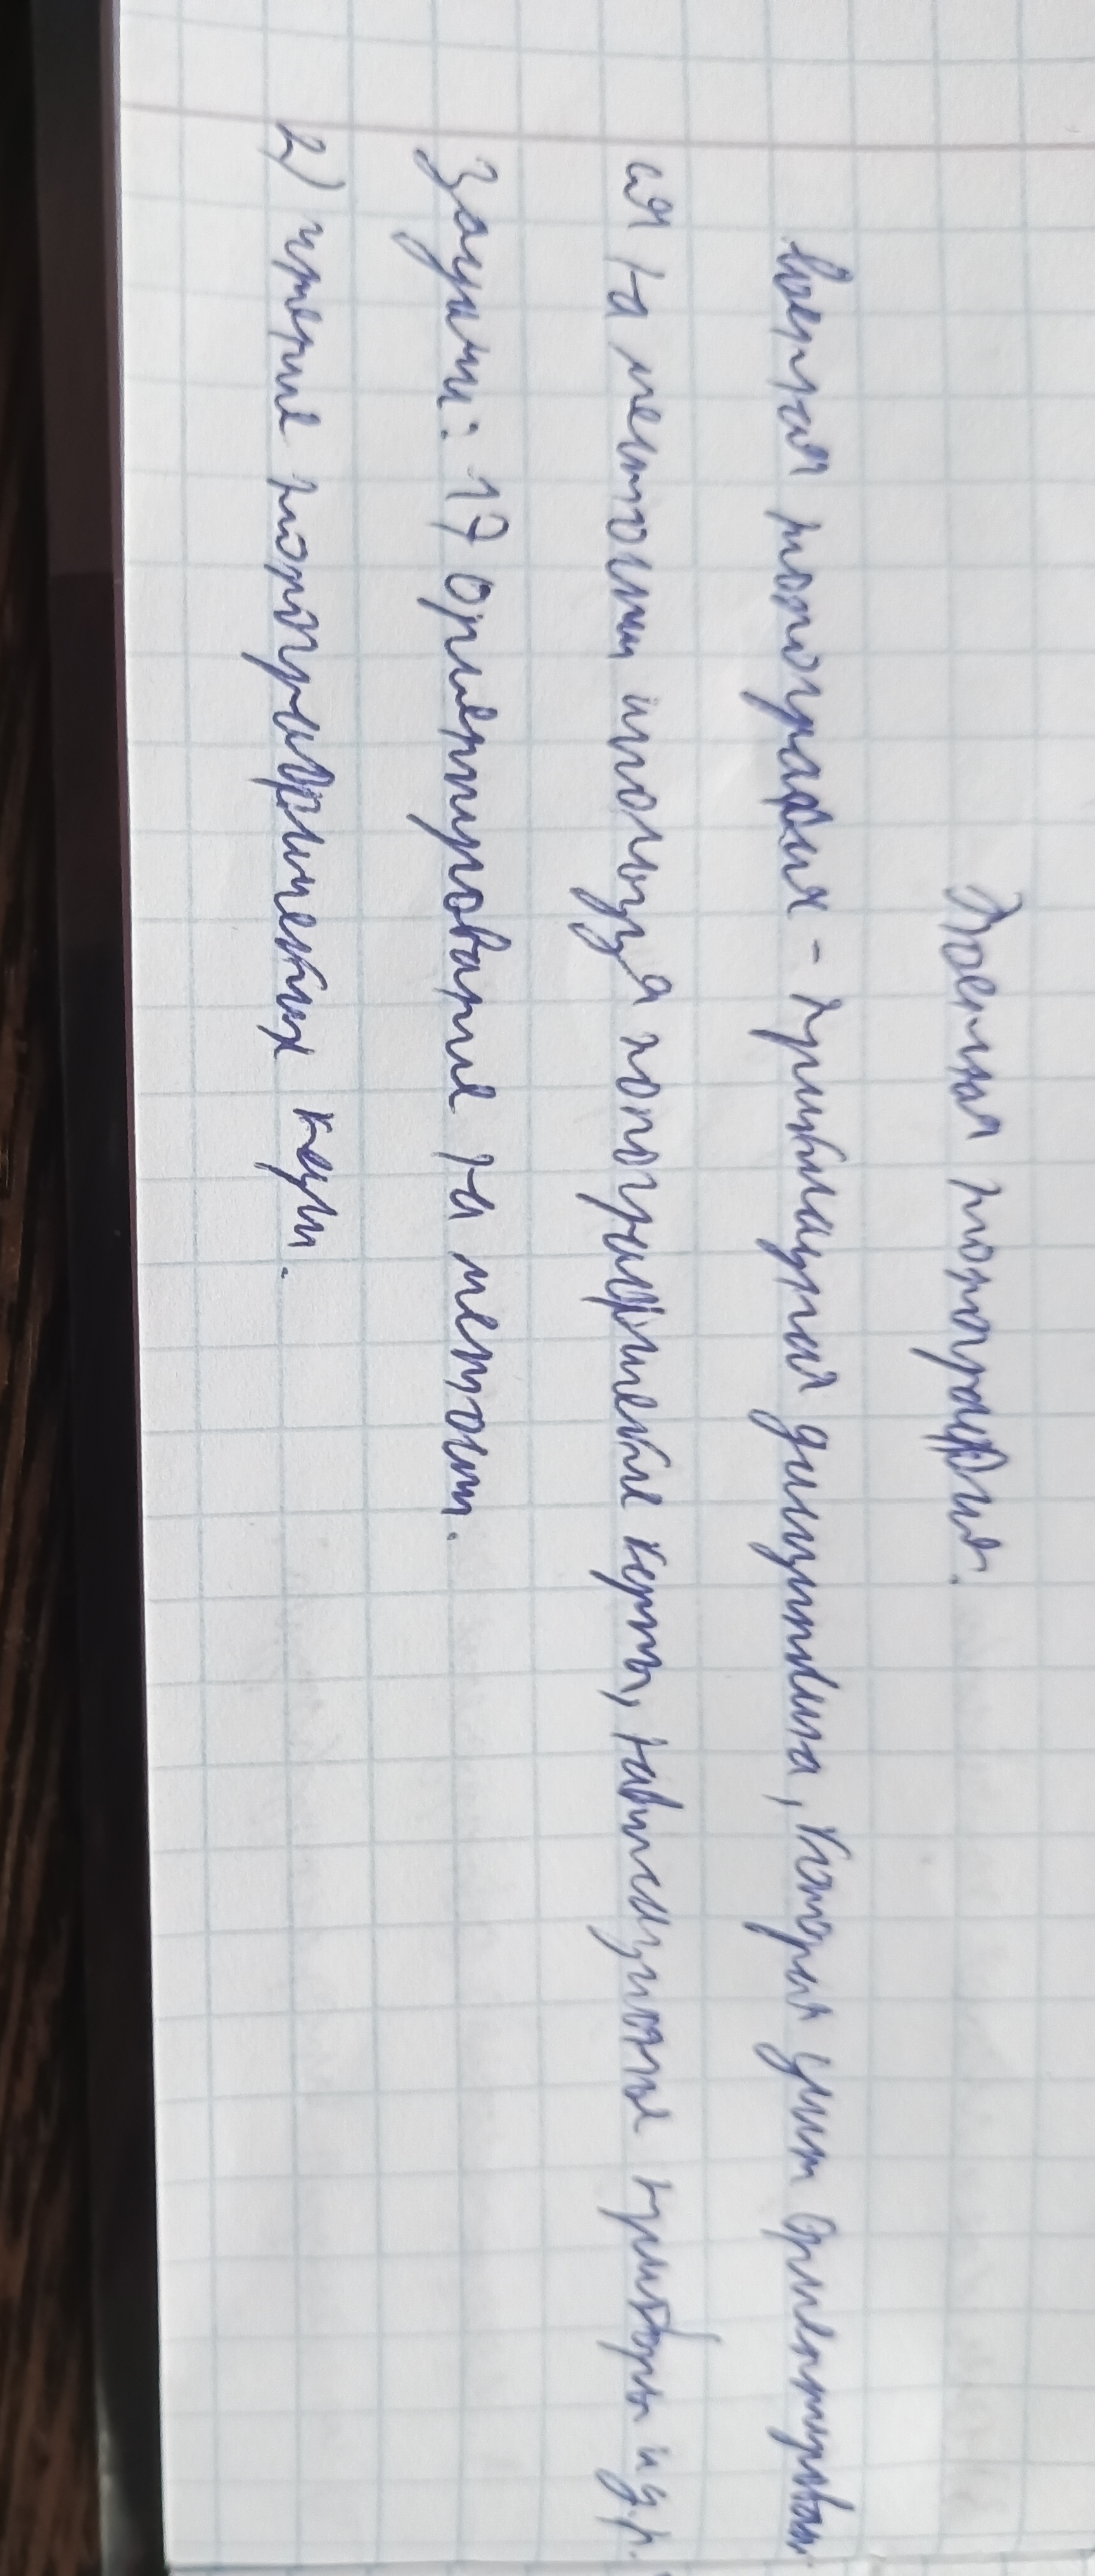 Военная топография.
Военная топография - прикладная дисциплина, которая учит ориентироват
ся на местности используя топографические карты, навигационные приборы и д.р.
Задачи: 1) Ориентирование на местност.
2) чтение топографических карт.